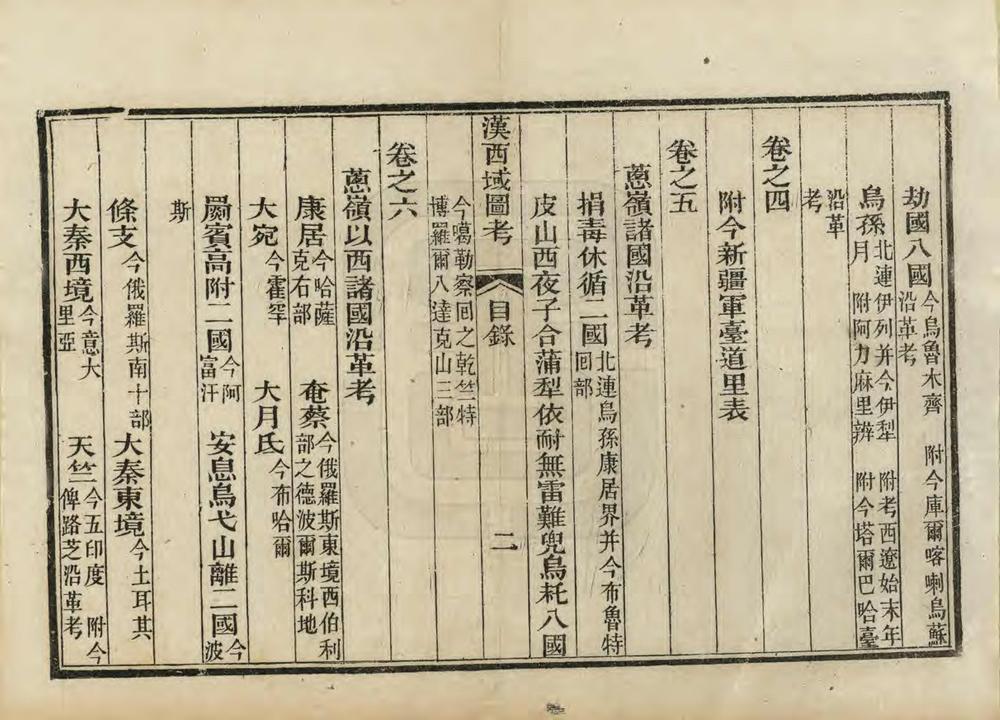 劫國八國今烏魯木齊　附今庫爾喀喇烏蘇
沿革考
烏孫北連伊列并今伊犁　附考西遼始末年
月　附阿力麻里辨　附今塔爾巴哈臺
沿革
考
卷之四
附今新疆軍臺道里表
卷之五
蔥嶺諸國沿革考
捐毒休循二國北連烏孫康居界并今布魯特
回部
皮山西夜子合蒲犁依耐無雷難兜烏秅八國
漢西域圖考　目錄　二
今噶勒察回之乾竺特
博羅爾八達克山三部
卷之六
蔥嶺以西諸國沿革考
康居今哈薩
克右部
奄蔡今俄羅斯東境西伯利
部之德波爾斯科地
大宛今霍罕　大月氏今布哈爾
罽賓高附二國今阿
富汗
安息烏弋山離二國今
波
斯
條支今俄羅斯南十部　大秦東境今土耳其
大秦西境今意大
里亞
天竺今五印度　附今
俾路芝沿革考